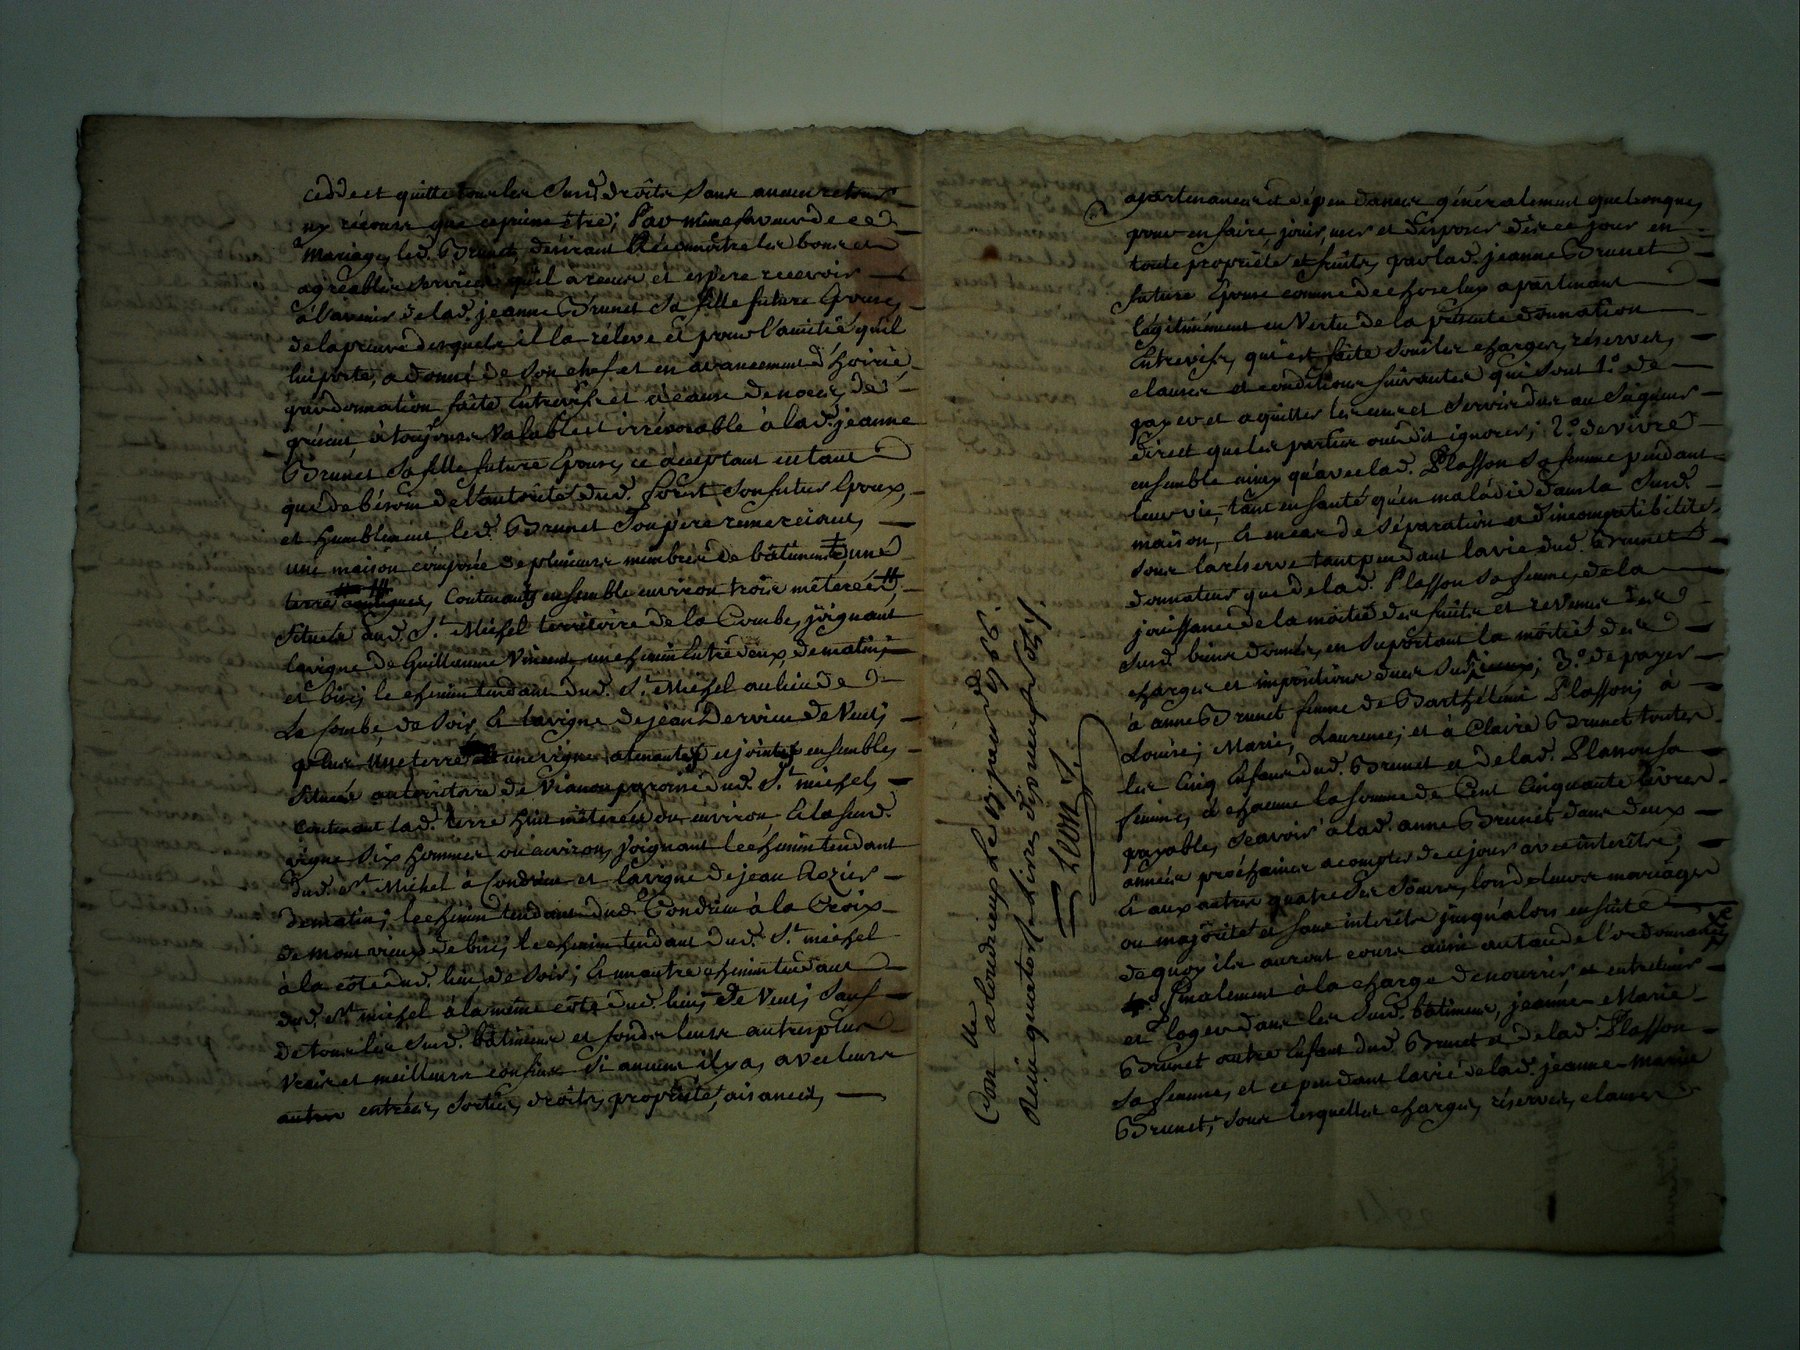 cedde et quitte tous les susd. droits sans aucun retour
ny recours que ce puisse être; Par même faveur de ce
mariage, led. Brunet, desirant Réconnoitre les bons et
agréables services qu'il a reçus et espere recevoir
à l'avenir de lad. jeanne Brunet sa fille future Epouse,
de la preuve desquels il la réleve et pour l'amitié qu'il
lui porte, a donné de son chef et en avancement d'hoirie,
par donnation faite Entrevifs et à cause de noces, de
présent à toujours Valable et irrévocable à lad. jeanne
Brunet sa fille future Epouse, ce acceptant en tant
que de bésoin de l'autorité dud. forest son futur Epoux,
et humblement led. Brunet son père remerciant,
une maison composée de plusieurs membres de bâtiments, une
terre contenant ensemble environ trois meterées,
située aud. St. Michel territoire de la Combe, joignant
la vigne de Guillaume Vincent, un chemin Entre deux, de matin;
et bise; le chemin tendant dud. St. Michel au lieu de
La Combe, de soir, & la vigne de jean Dervieu de Vent;
plus une terre une vigne atenantes et jointes ensembles,
situées au territoire de Vianon paroisse dud. St. michel,
contenant lad. terre huit mêterées ou environ & la susd.
vigne six hommes ou environ, joignant le chemin tendant
dud. St. Michel à Condrieu et la vigne de jean Rozier
de matin; le chemin tendant dud. Condrieu à la Croix
de mont vieux de bise; le chemin tendant dud. St. michel
à la côte dud. lieu de soir; & un autre chemin tendant
dud. St. michel à la même côte dud. lieu, de Vent; sauf
de tous les susd. bâtiments et fonds leurs autres plus
vrais et meilleurs confins si aucuns il y a, avec leurs
entrées, sorties, droits, proprieté, aisances,
Con. lle a Condrieu Le 13 janv. 1766.
Reçu quatorze Livres dix neuf sols /.
Leon
apartenances et dépendances généralement quelconques,
pour en faire, jouir, user et disposer dès ce jour en
toute proprieté et fruits, par lad. jeanne Brunet
future Epouse comme de chose lui apartenant
légitimément en Vertu de la présente donnation
Entrevifs, qui est faite sous les charges, réserves,
clauses et conditions suivantes qui sont 1.° de
payer et aquitter les cens et servis dus au Seigneur
direct que les parties ont dit ignorer; 2.° de vivre
ensemble ainsy qu'avec lad. Plasson sa femme pendant
leur vie, tant en santé qu'en maladie dans la susd.
maison, & en cas de séparation et d'incompatibilité,
sous la réserve tant pendant la vie dud. Brunet
donnateur que de lad. Plasson sa femme, de la
jouissance de la moitié des fruits et revenus des
susd. biens donnés, en suportant la moitié des
charges et impositions d'iceux; 3.° de payer
à anne Brunet femme de Barthélemi Plasson, à
Louise, Marie, Laurence, et à Claire Brunet toutes
les cinq Enfans dud. Brunet et de lad. Plasson sa
femme, à chacune la somme de Cent Cinquante livres
payable, sçavoir à lad. anne Brunet dans deux
années prochaines à compter de ce jour avec interêts;
& aux autres quatre ses soeurs, lors de leurs mariages
ou majorité et sans interêts jusqu'alors ensuite
de quoy ils auront cours ainsi au taux de l'ordonnance
4.° Finalement à la charge de nourrir et entretenir
et loger dans les susd. bâtimens, jeanne Marie
Brunet autre Enfant dud. Brunet et de lad. Plasson
sa femme, et ce pendant la vie de lad. jeanne Marie
Brunet; sous lesquelles charges, réserves, clauses